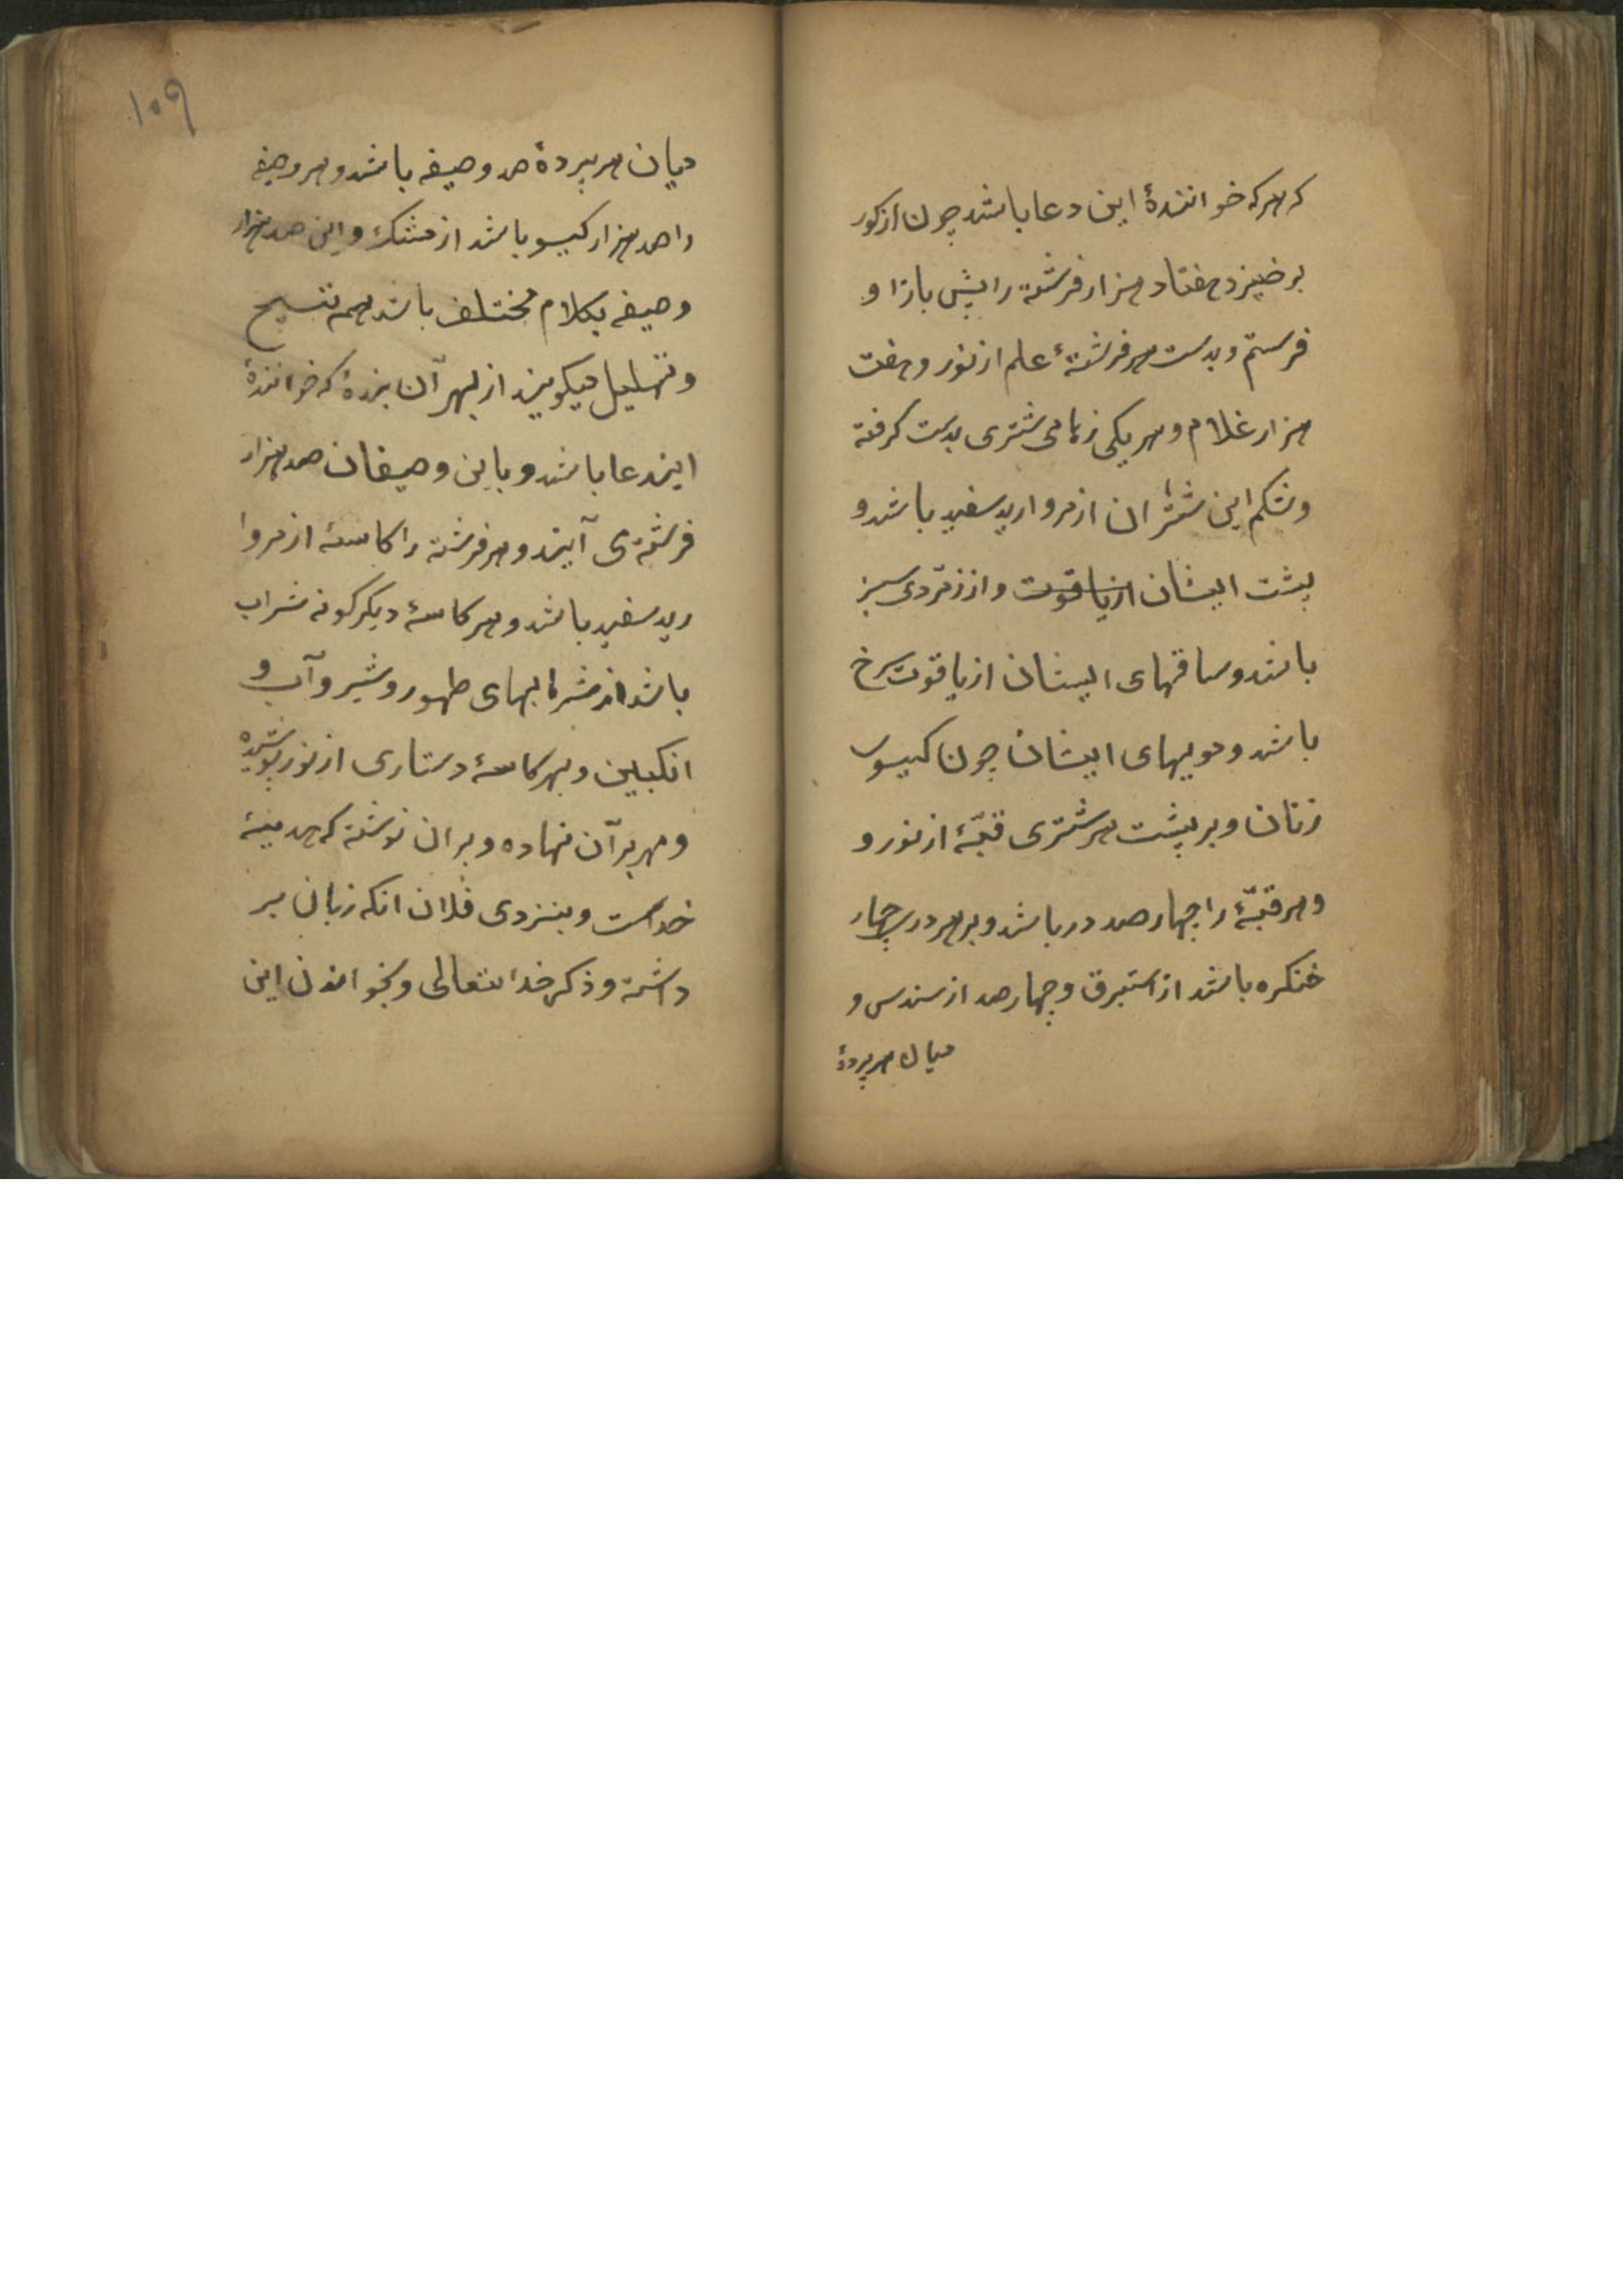 که هرکه خوانندهٔ این دعا باشد چون از کور
بر خیزد هفتاد هزار فرشته را پیش باز او
فرستم و بدست هر فرشتهٔ علم از نور و هفت
هزار غلام و هر یکی زمامی شتری بدست کرفته
و شکم این شتران از مروارید سفید باشد و
پشت ایشان از یاقوت و از زمّردی سبز
باشد و ساقهای ایشان از یاقوت سرخ
باشد و مویهای ایشان چون کیسوی
زنان و بر پشت هر شتری قبّهٔ از نور و
و هر قبّهٔ را چهار صد در باشد و بر هر دری چهار
خنکره باشد از استبرق و چهار صد از سندس و
میان هر پردهٔ
۱۰۹
میان هر پردهٔ صد وصیفه باشد و هر وصیفه
را صد هزار کیسو باشد از مشک و این صد هزار
وصیفه بکلام مختلف باشد همه تسبیح
و تهلیل میکویند از بهر آن بندهٔ که خوانندهٔ
ایندعا باشد و باین وصیفان صد هزار
فرشته می آیند و هر فرشته را کاسهٔ از مروا
رید سفید باشد و هر کاسهٔ دیکر کونه شراب
باشد از شرابهای طهور و شیر و آب و
انکبین و بهر کاسهٔ دستاری از نور پوشیده
و مهر بر آن نهاده و بر ان نوشته که هدیهٔ
خداست و بنزدی فلان انکه زبان بر
داشته و ذکر خدایتعالی و بخواندن این